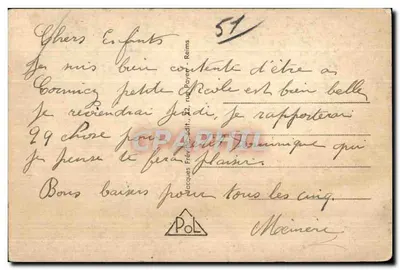 Chers Enfants
51
Je suis bien contente d'être a
Cormicy petite Nicole est bien belle
je reviendrai jeudi, je rapporterai
qq chose pour Dominique qui
je pense te fera plaisir.
Bons baisers pour tous les cinq.
Mémère
Jacques Fréville, Édit., 22, rue Payen - Reims
CPARAMA
PoL